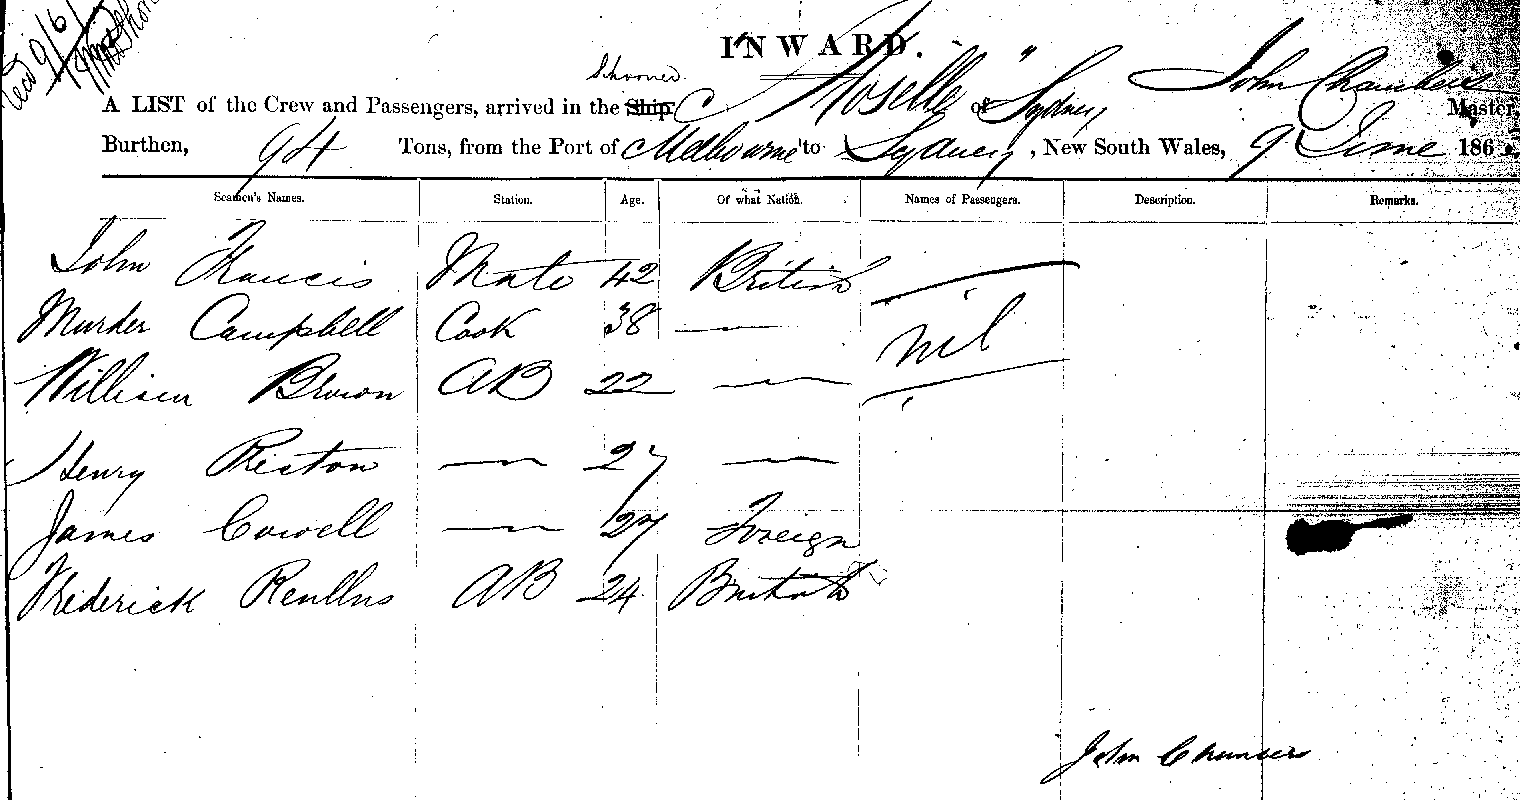 INWARD.
Schooner
A LIST of the Crew and Passengers, arrived in the Ship of Sydney John Chambers Master,
Burthen, 94 Tons, from the Port of Melbourne to Sydney, New South Wales, 9 June 186
Seamen's Names. Station. Age. Of what Nation. Names of Passengers. Description. Remarks.
John Francis Mate 42 British
Murder Campbell Cook 38 — nil
William Brown AB 22 —
Henry — 27 —
James Cowell — 27 Foreign
Frederick AB 24 British
John Chambers